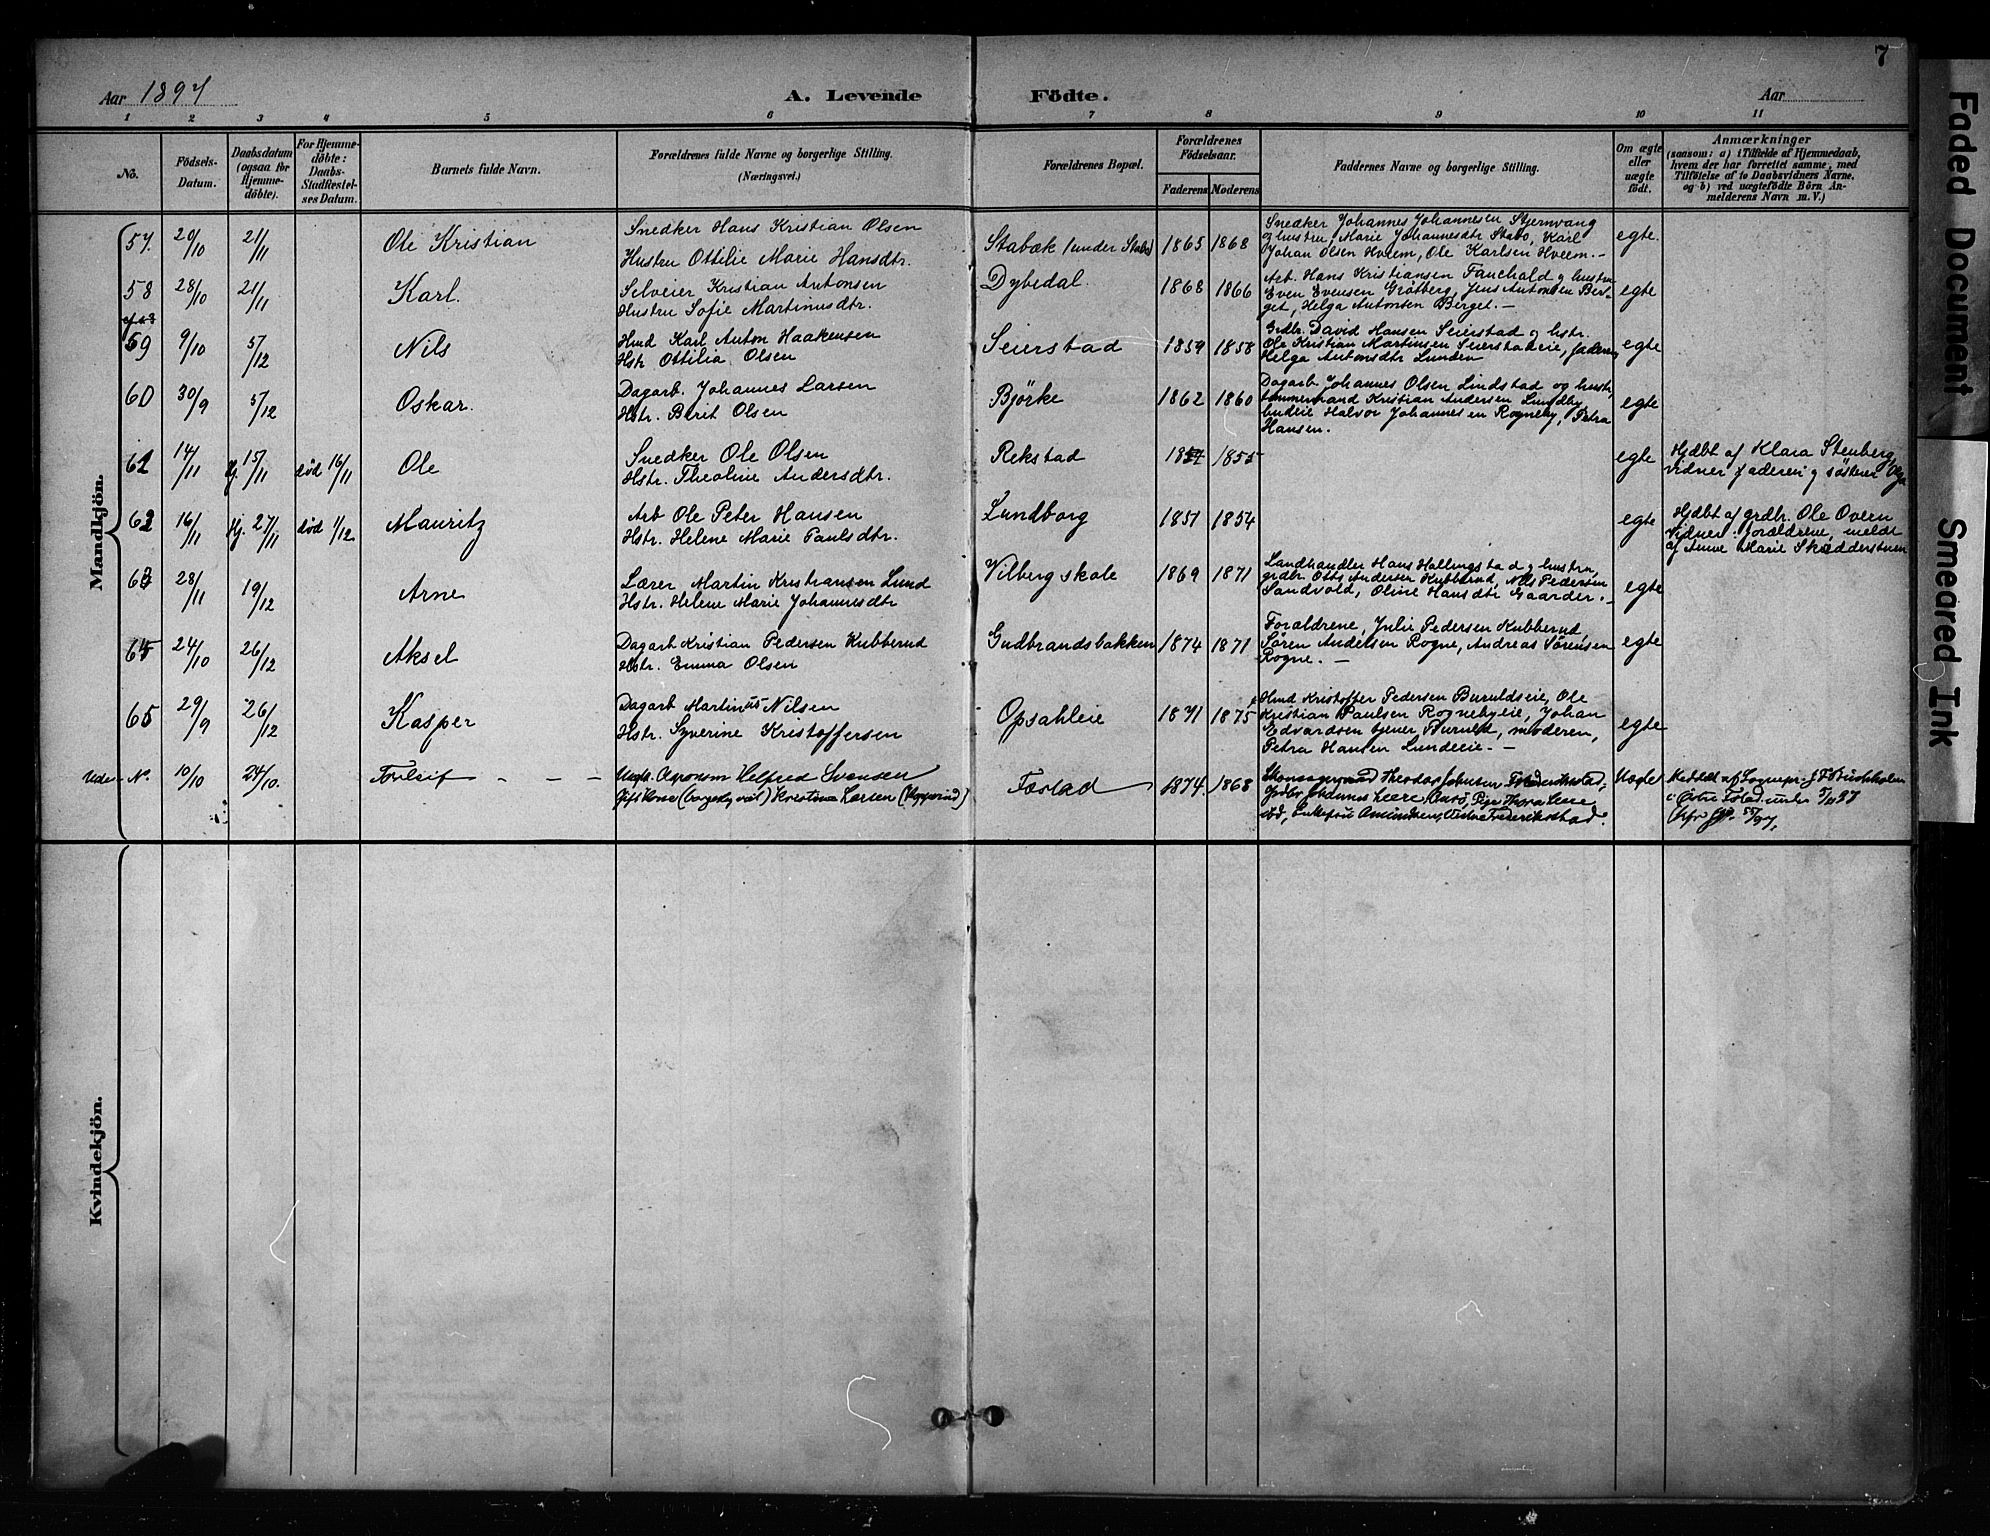 7
Aar 1897 A. Levende Födte. Aar
1 2 3 4 5 6 7 8 9 10 11
No.
Födsels-Datum.
Daabsdatum (ogsaa for Hjemme-döbte).
For Hjemme-döbte: Daabs-Stadfæstel-ses Datum.
Barnets fulde Navn.
Forældrenes fulde Navne og borgerlige Stilling.
(Næringsvei.)
Forældrenes Bopæl.
Forældrenes Födselsaar.
Faderens Moderens
Faddernes Navne og borgerlige Stilling.
Om ægte eller uægte födt.
Anmærkninger
(saasom: a) i Tilfælde af Hjemmedaab,
hvem der har forrettet samme, med
Tilföielse af to Daabsvidners Navne,
og b) ved uægtefödte Börn An-
melderens Navn m. V.)
Mandkjön.
57. 29/10 21/11 Ole Kristian
Snedker Hans Kristian Olsen
Hustru Ottilie Marie Hansdtr.
Stabæk (under Stabo) 1865 1868
Snedker Johannes Johannesen Stjernvang
og hustru, Marie Johannesdtr Stabo, Karl
Johan Olsen Hveem, Ole Karlsen Hveem. -
egte.
58 28/10 21/11 Karl.
Selveier Kristian Antonsen
Hustru Sofie Martinusdtr.
Dybedal 1868 1866
Arb. Hans Kristiansen Fauchald og hustru
Even Evensen Grötberg, Jens Antonsen Ber-
get, Helga Antonsen Berget. -
egte
59 9/10 5/12 Nils
Hmd Karl Anton Haakensen
Hstr Ottilia Olsen
Seierstad 1859 1858
Grdbr. David Hansen Seierstad og hstr.
Ole Kristian Martinsen Seierstadeie, faderen,
Helga Antonsdtr Lunden
egte
60 30/9 5/12 Oskar.
Dagarb. Johannes Larsen
Hstr. Berit Olsen
Björke 1862 1860
Dagarb Johannes Olsen Lindstad og hustr,
tömmermand Kristian Andersen Lundby,
Halvor Johannesen Rogneby, Petra
Hansen.
egte
61 14/11 Hj. 15/11 död 16/11 Ole
Snedker Ole Olsen
Hstr. Theoline Andersdtr.
Rekstad 1854 1855
egte
Hjdbt af Klara Stenberg,
vidner faderen og söstren Olga
62 16/11 Hj. 27/11 död 1/12 Mauritz
Arb Ole Peter Hansen
Hstr. Helene Marie Paulsdtr.
Lundborg 1851 1854
egte
Hjdbt af grdbr. Ole Overn
Vidner: forældrene, meldt
af Anne Marie Skrædderstuen
63 28/11 19/12 Arne
Lærer Martin Kristiansen Lund
Hstr. Helene Marie Johannesdtr
Vilberg skole 1869 1871
Landhandler Hans Hallingstad og hustru,
grdbr. Otto Andersen Kubberud, Nils Pedersen
Sandvold, Oline Hansdtr Gaarder. -
egte
64 24/10 26/12 Aksel
Dagarb Kristian Pedersen Kubberud
Hstr. Emma Olsen
Gudbrandsbakken 1874 1871
Forældrene, Julie Pedersen Kubberud,
Sören Andersen Rogne, Andreas Sörensen
Rogne. -
egte
65 29/9 26/12 Kasper
Dagarb Martinus Nilsen
Hstr. Syverine Kristoffersen
Opsahleie 1871 1875
Hmd Kristoffer Pedersen Buruldseie, Ole
Kristian Paulsen Rognebyeie, Johan
Edvardsen tjener Buruld, moderen,
Petra Hansen Lundeeie. -
egte
Uden No. 10/10 24/10. Torleif - - -
Ungk. Agronom Helfred Svensen
Gift Kone (borgerlig viet) Kristine Larsen
Tøstad 1874. 1868
Theodor Johnsen Frederikstad,
Grdbr. Johannes Leere
Enkefru Amundsen, Frederikstad.
Uægte
Meddelt af Sognepr. J F Buchholm
i Østre under 5/11 97
Kvindekjön.
Faded Document
Smeared Ink